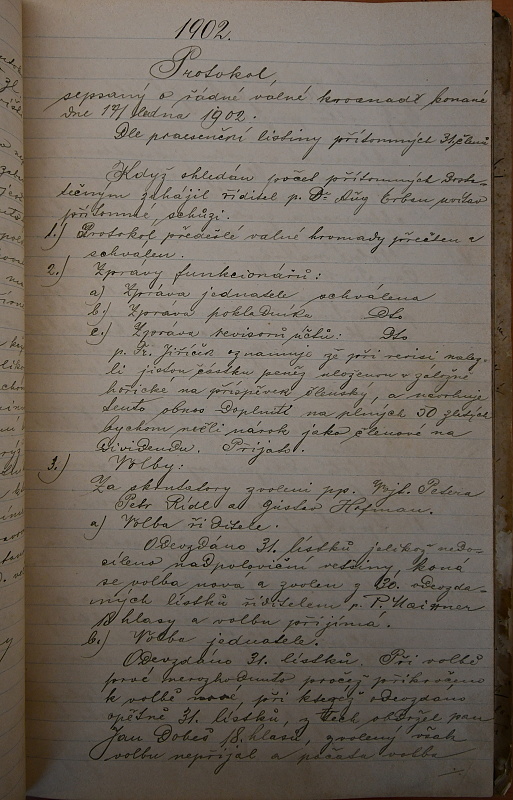 1902.
Protokol,
sepsaný o řádné valné hromadě konané
dne 17/1 ledna 1902.
Dle praesenční listiny přítomných 31 členů
Když shledán počet přítomných dosta-
tečným zahájil ředitel p. Dr Aug. Erben uvítav
přítomné, schůzi.
1.) Protokol předešlé valné hromady přečten a
schválen.
2.) Zprávy funkcionářů:
a) Zpráva jednatele schválena
b) Zpráva pokladníka Dto
c) Zpráva revisorů účtů: Dto
p. Fr. Jiříček oznamuje že při revisi nalez-
li jistou částku peněz uloženou v záložně
hořické na příspěvek členský, a navrhuje
tento obnos doplniti na plných 50 zlatých
bychom měli nárok jako členové na
dividendu. Přijato.
3.) Volby:
Za skrutatory zvoleni pp. Vojt. Petera
Petr Rídl a Gustav Hofman.
a) Volba ředitele.
Odevzdáno 31. lístků jelikož nedo-
cíleno nadpoloviční vetšiny, koná
se volba nová a zvolen z 30. odevzda-
ných lístků ředitelem p. P.
18 hlasy a volbu přijímá.
b) Volba jednatele.
Odevzdáno 31. lístků. Při volbě
prvé nerozhodnuto pročež přikročeno
k volbě nové, při kteréž odevzdáno
opětně 31. lístků, z těch obdržel pan
Jan Dobeš 18. hlasů, zvolený však
volbu nepřijal a počata volba